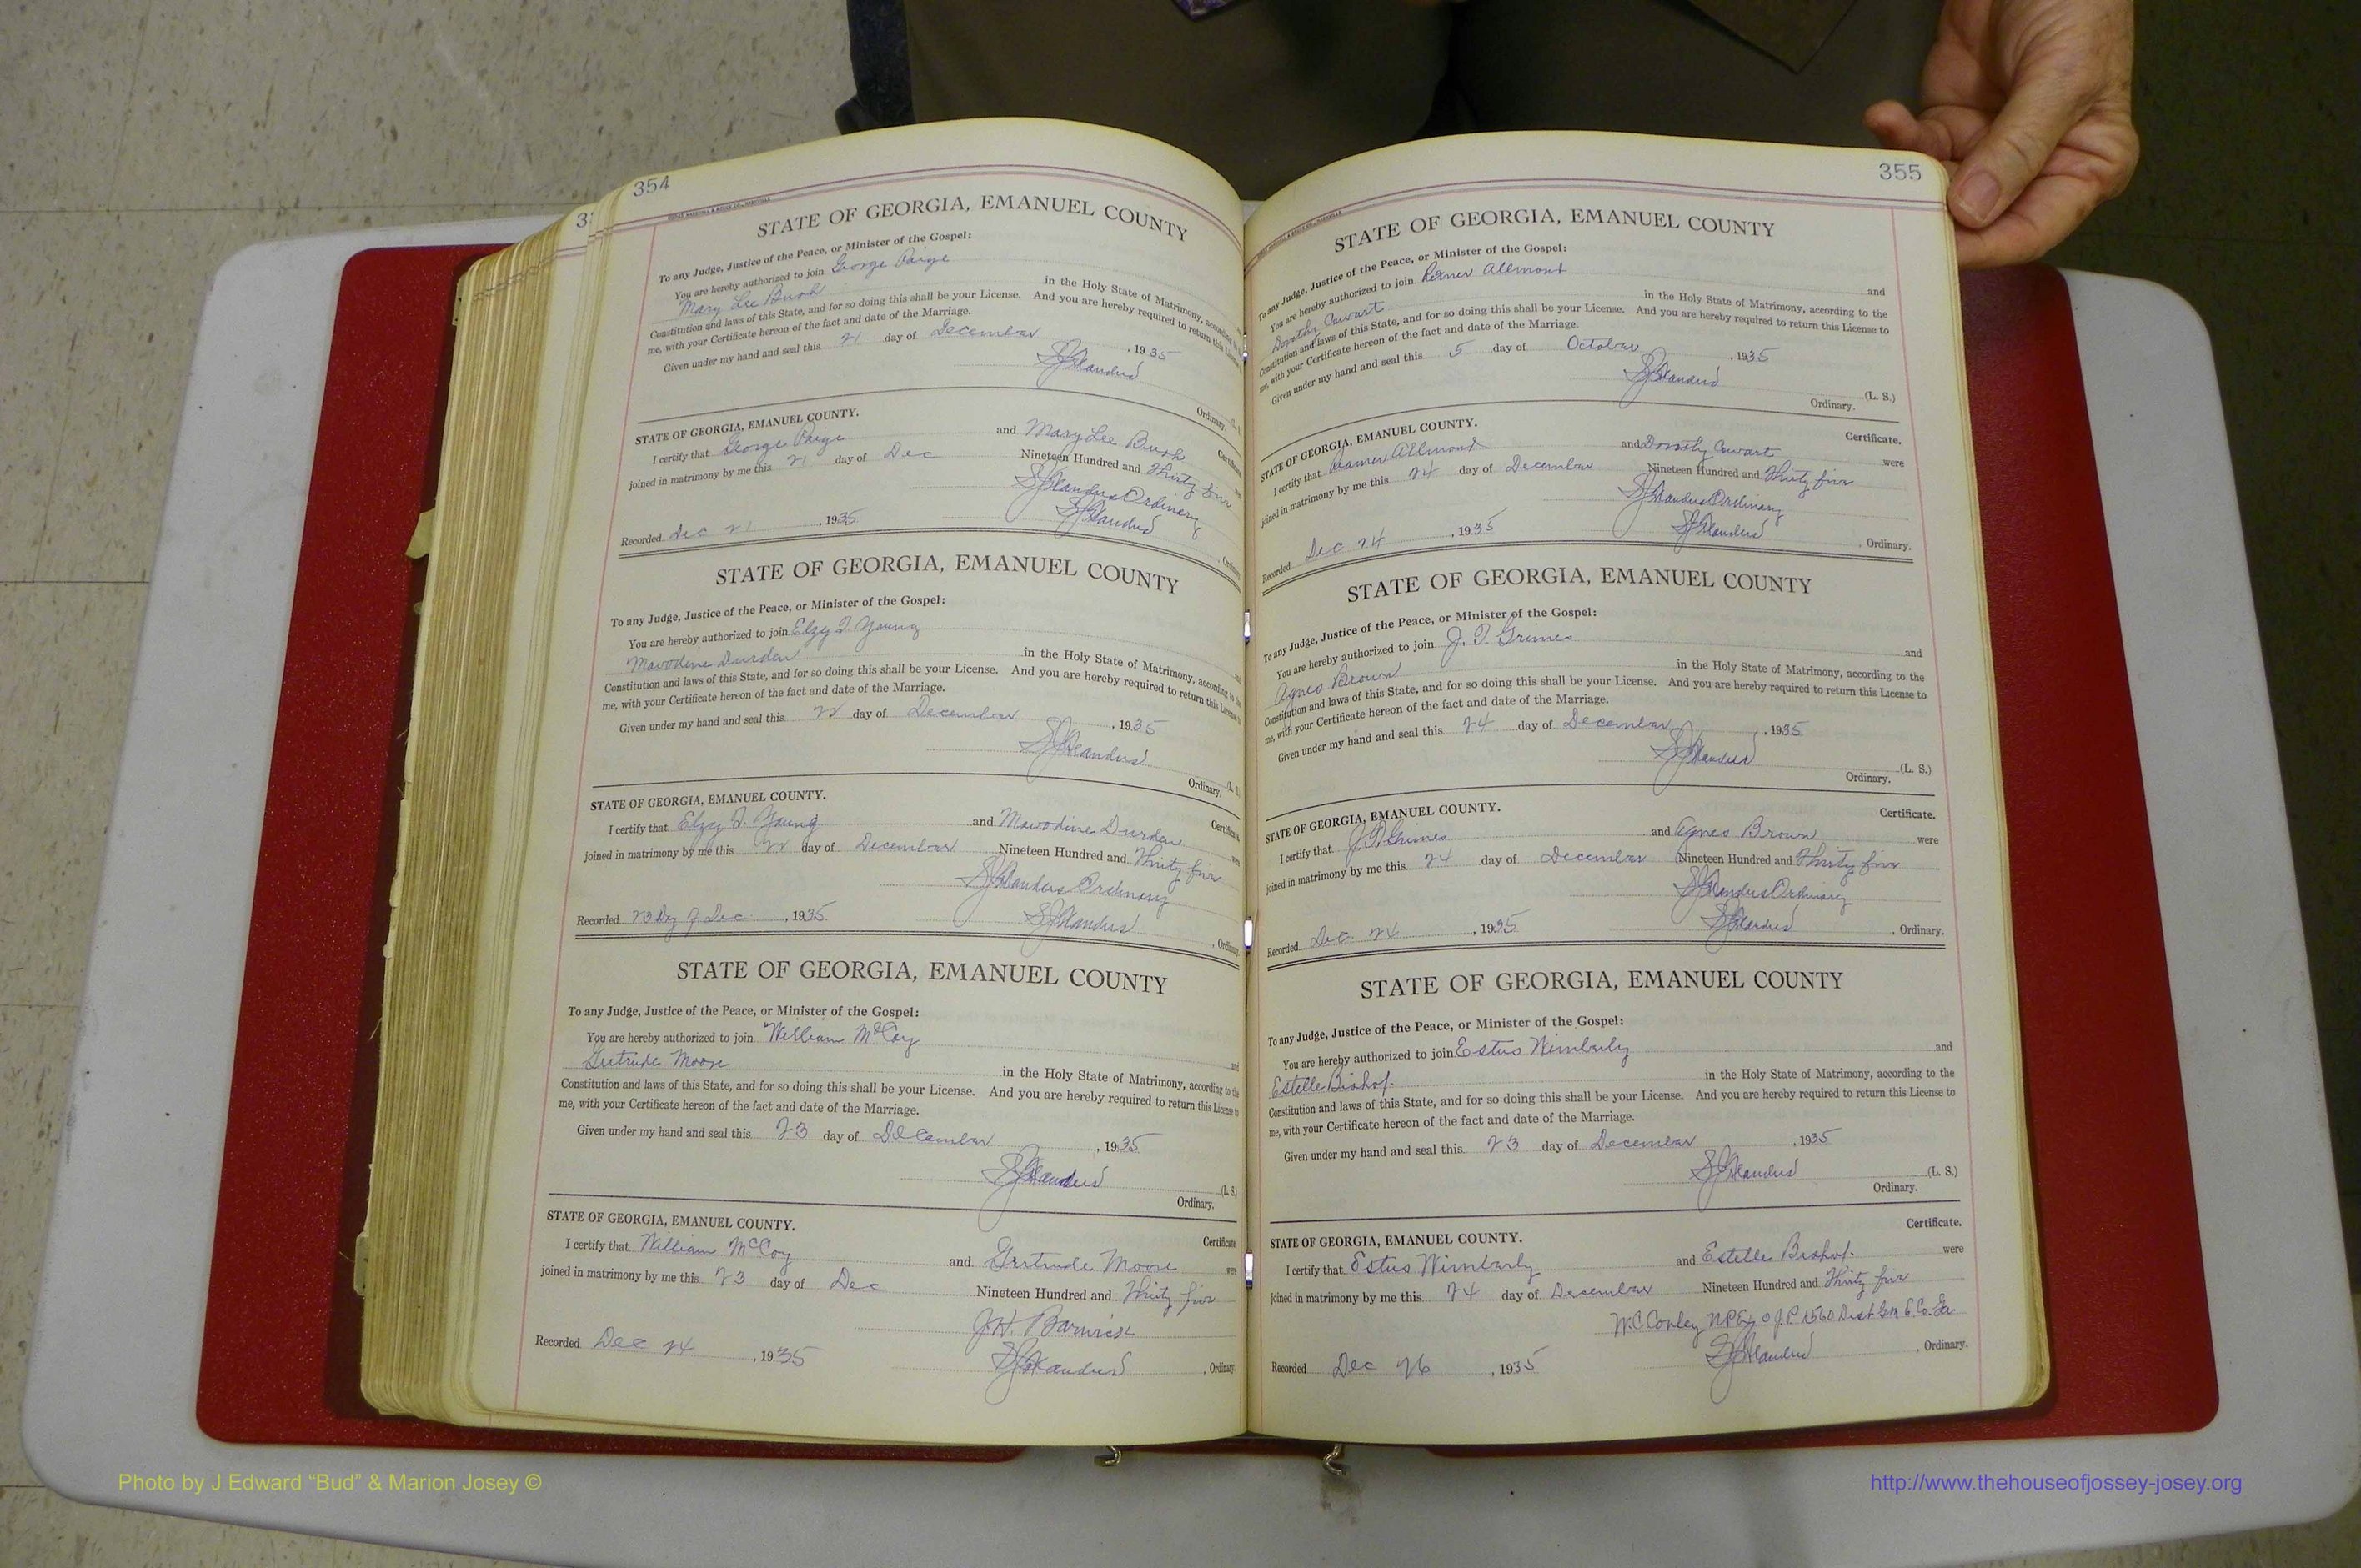 354
STATE OF GEORGIA, EMANUEL COUNTY
To any Judge, Justice of the Peace, or Minister of the Gospel:
You are hereby authorized to join George Paige
Mary Lee Bush in the Holy State of Matrimony, according to
Constitution and laws of this State, and for so doing this shall be your License. And you are hereby required to return this License
me, with your Certificate hereon of the fact and date of the Marriage.
Given under my hand and seal this 21 day of December, 1935
Ordinary.
STATE OF GEORGIA, EMANUEL COUNTY.
I certify that George Paige and Mary Lee Bush
joined in matrimony by me this 21 day of Dec Nineteen Hundred and Thirty five
Ordinary
Recorded Dec 21, 1935
STATE OF GEORGIA, EMANUEL COUNTY
To any Judge, Justice of the Peace, or Minister of the Gospel:
You are hereby authorized to join Elzy Young
Mavodine Durden in the Holy State of Matrimony, according to the
Constitution and laws of this State, and for so doing this shall be your License. And you are hereby required to return this License to
me, with your Certificate hereon of the fact and date of the Marriage.
Given under my hand and seal this 22 day of December, 1935
Ordinary. (L. S.
STATE OF GEORGIA, EMANUEL COUNTY.
Certificate.
I certify that Elzy Young and Mavodine Durden were
joined in matrimony by me this 22 day of December Nineteen Hundred and Thirty five
Ordinary
Recorded 23 Day of Dec., 1935
, Ordinary.
STATE OF GEORGIA, EMANUEL COUNTY
To any Judge, Justice of the Peace, or Minister of the Gospel:
You are hereby authorized to join William McCoy and
Gertrude Moore in the Holy State of Matrimony, according to the
Constitution and laws of this State, and for so doing this shall be your License. And you are hereby required to return this License to
me, with your Certificate hereon of the fact and date of the Marriage.
Given under my hand and seal this 23 day of December, 1935
(L. S.)
Ordinary.
STATE OF GEORGIA, EMANUEL COUNTY.
Certificate.
I certify that William McCoy and Gertrude Moore were
joined in matrimony by me this 23 day of Dec Nineteen Hundred and Thirty five
J.H. Barwick
Recorded Dec 24, 1935
, Ordinary.
355
STATE OF GEORGIA, EMANUEL COUNTY
To any Judge, Justice of the Peace, or Minister of the Gospel:
You are hereby authorized to join Allmont and
Dorothy Cowart in the Holy State of Matrimony, according to the
Constitution and laws of this State, and for so doing this shall be your License. And you are hereby required to return this License to
me, with your Certificate hereon of the fact and date of the Marriage.
Given under my hand and seal this 5 day of October, 1935
(L. S.)
Ordinary.
STATE OF GEORGIA, EMANUEL COUNTY.
Certificate.
I certify that Allmond and Dorothy Cowart were
joined in matrimony by me this 24 day of December Nineteen Hundred and Thirty five
Ordinary
Recorded Dec 24, 1935
, Ordinary.
STATE OF GEORGIA, EMANUEL COUNTY
To any Judge, Justice of the Peace, or Minister of the Gospel:
You are hereby authorized to join Grimes and
Agnes Brown in the Holy State of Matrimony, according to the
Constitution and laws of this State, and for so doing this shall be your License. And you are hereby required to return this License to
me, with your Certificate hereon of the fact and date of the Marriage.
Given under my hand and seal this 24 day of December, 1935
(L. S.)
Ordinary.
STATE OF GEORGIA, EMANUEL COUNTY.
Certificate.
I certify that Grimes and Agnes Brown were
joined in matrimony by me this 24 day of December Nineteen Hundred and Thirty five
Ordinary
Recorded Dec. 24, 1935
, Ordinary.
STATE OF GEORGIA, EMANUEL COUNTY
To any Judge, Justice of the Peace, or Minister of the Gospel:
You are hereby authorized to join Estus Wimberly and
Estelle Bishop. in the Holy State of Matrimony, according to the
Constitution and laws of this State, and for so doing this shall be your License. And you are hereby required to return this License to
me, with your Certificate hereon of the fact and date of the Marriage.
Given under my hand and seal this 23 day of December, 1935
(L. S.)
Ordinary.
STATE OF GEORGIA, EMANUEL COUNTY.
Certificate.
I certify that Estus Wimberly and Estelle Bishop. were
joined in matrimony by me this 24 day of December Nineteen Hundred and Thirty five
W.C. Conley N.P. J.P 1560 Dist G.M. E. Co. Ga
Recorded Dec 26, 1935
, Ordinary.
Photo by J Edward “Bud” & Marion Josey ©
http://www.thehouseofjossey-josey.org